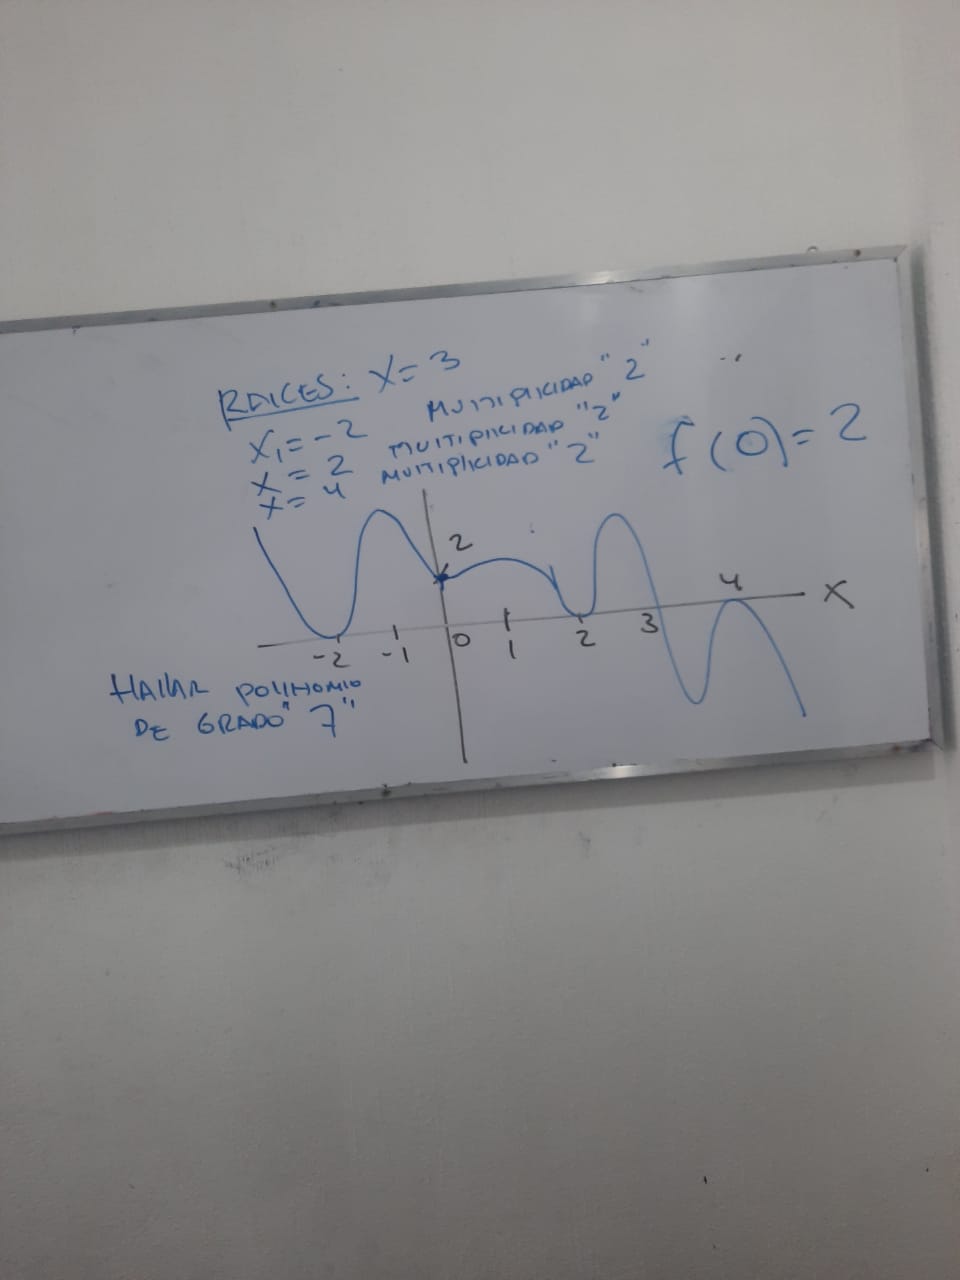 RAICES: X=3
X₁=-2 MULTIPLICIDAD "2"
X=2 MULTIPLICIDAD "2"
X=4 MULTIPLICIDAD "2"
f(0)=2
2
4
X
-2 -1 0 1 2 3
HALLAR POLINOMIO
DE GRADO "7"